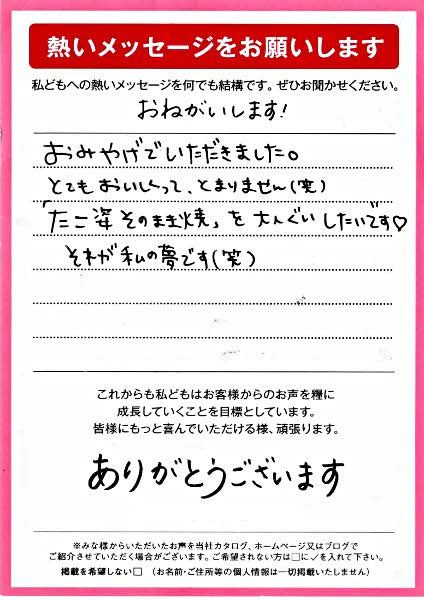 熱いメッセージをお願いします
私どもへの熱いメッセージを何でも結構です。ぜひお聞かせください。
おねがいします!
おみやげでいただきました。
とてもおいしくって、とまりません(笑)
「たこ姿そのまま焼」を大人ぐいしたいです♡
それが私の夢です(笑)
これからも私どもはお客様からのお声を糧に
成長していくことを目標としています。
皆様にもっと喜んでいただける様、頑張ります。
ありがとうございます
※みな様からいただいたお声を当社カタログ、ホームページ又はブログで
ご紹介させていただく場合がございます。ご希望されない方は□に✓を入れて下さい。
掲載を希望しない□ (お名前・ご住所等の個人情報は一切掲載いたしません)